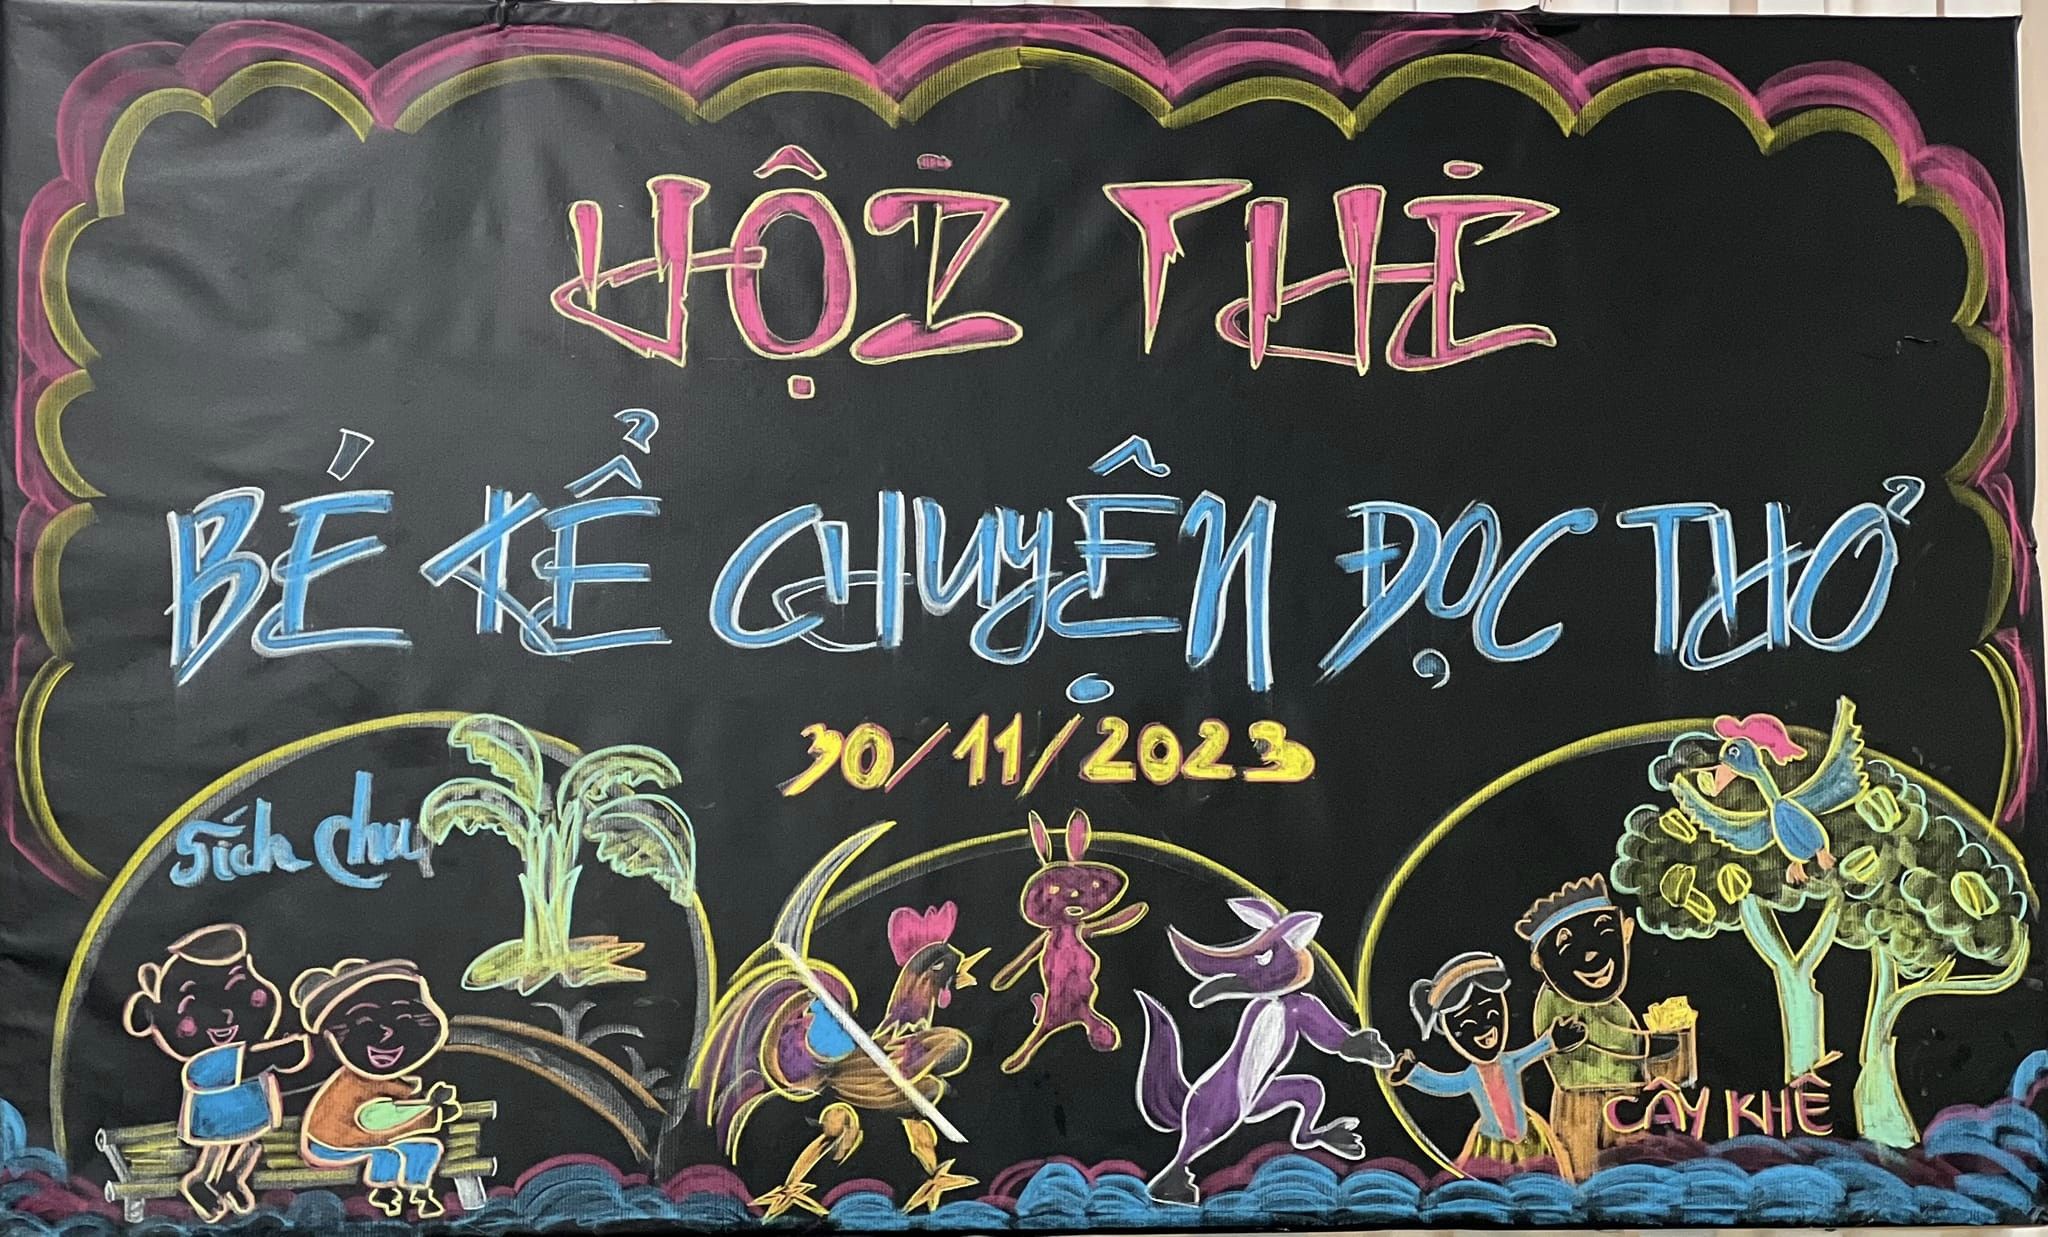 HỘI THI
BÉ KỂ CHUYỆN ĐỌC THƠ
30/11/2023
Tích chu
CÂY KHẾ